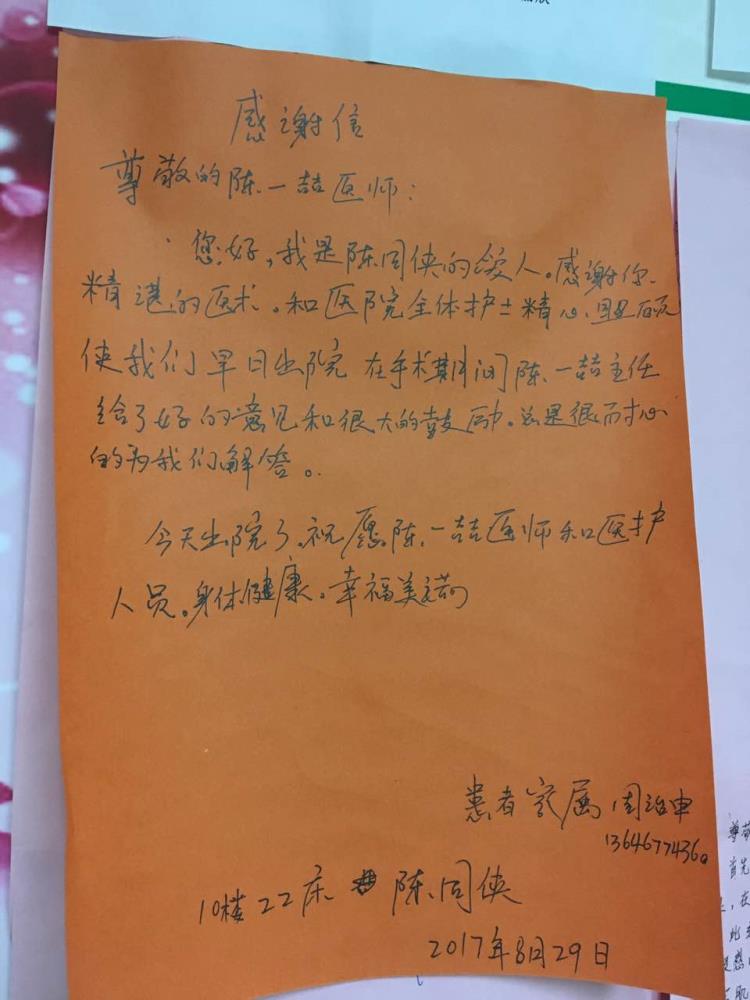 感谢信
尊敬的陈一喆医师:
您好,我是陈同侠的爱人。感谢你
精湛的医术。和医院全体护士精心
使我们早日出院 在手术期间陈一喆主任
给了好的意见和很大的鼓励。总是很耐心
的为我们解答。
今天出院了.祝愿陈一喆医师和医护
人员。身体健康。幸福美满
患者家属 周治申
13646774360
10楼22床 陈同侠
2017年8月29日
尊敬
首先
在
此